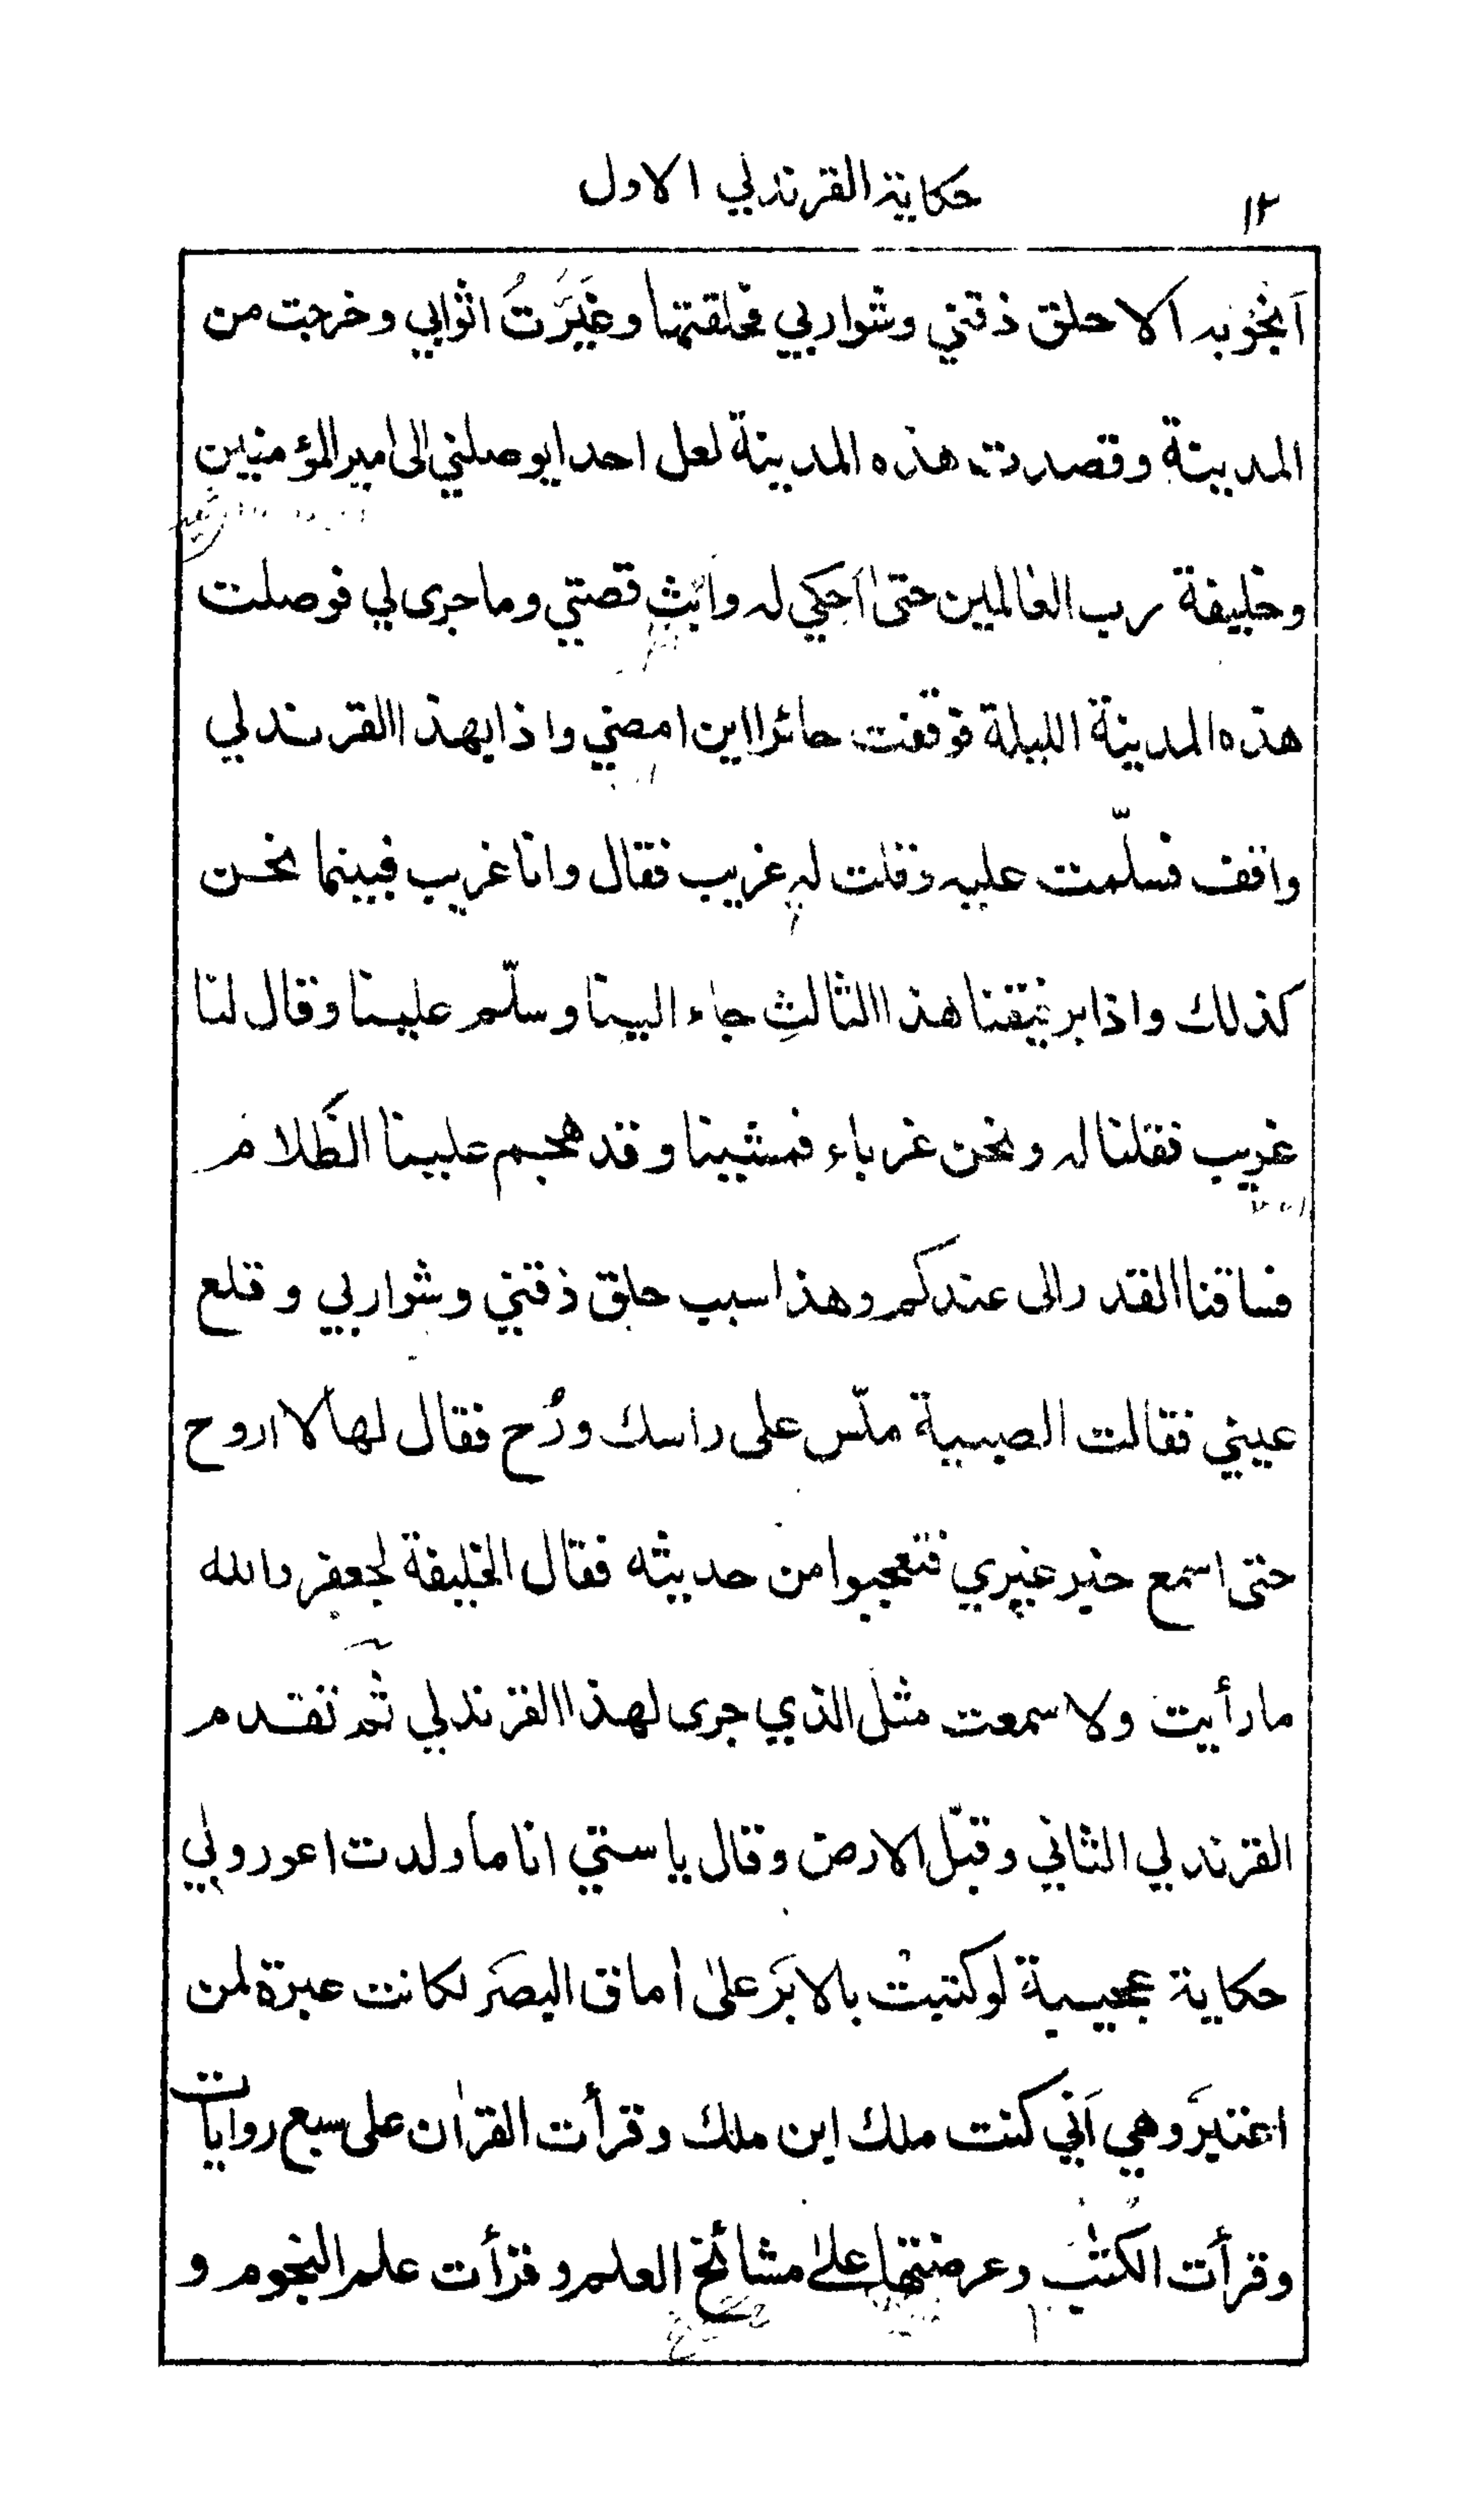 ١٢ حكاية القرندلي الاول
اَنْجُوْ به اَلا حلق ذقني وشواربي فحلقتها وغَيَّرْتُ اثوابي وخرجت من
المدينة وقصدت هذه المدينة لعل احدا يوصلني الى امير المؤمنين
وخليفة رب العالمين حتىٰ اَحكي له واَبُث قصتي وما جرى لي فوصلت
هذه المدينة الليلة فوقفت حائرا اين امضي واذا بهذا القرندلي
واقف فسلّمت عليه وقلت له غريب فقال وانا غريب فبينما نحن
كذلك واذا برفيقنا هذا الثالثِ جاء الينا وسلّم علينا وقال لنا
غريب فقلنا له ونحن غرباء فمشينا وقد هجم علينا الظَلام
فساقنا القدر الى عندكم وهذا سبب حلق ذقني وشواربي وقلع
عيني فقالت الصبية ملّس على راسك ورُح فقال لها لا اروح
حتى اسمع خبر غيري فتعجبوا من حديثه فقال الخليفة لجعفر والله
ما رأيت ولا سمعت مثل الذي جرى لهذا القرندلي ثم تقدم
القرندلي الثاني وقبّل الارض وقال يا ستي انا ما ولدت اعور ولي
حكاية عجيبة لو كتبتْ بالابَر علىٰ أماق البصَر لكانت عبرة لمن
اعتبَر وهي اَني كنت ملك ابن ملك وقرأت القراٰن على سبع روايات
وقرأت الكُتُبَ وعرضتها علىٰ مشائخ العلم وقرأت علم النجوم و